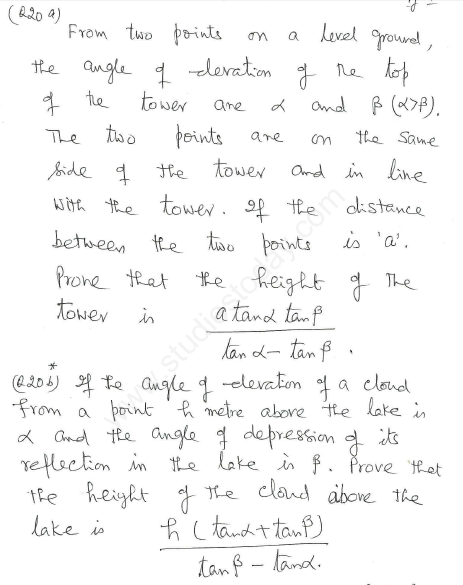 (Q20 a)
From two points on a level ground,
the angle of elevation of the top
of the tower are α and β (α>β).
The two points are on the same
side of the tower and in line
with the tower. If the distance
between the two points is 'a'.
Prove that the height of the
tower is a tanα tanβ
tanα - tanβ .
*
(Q20b) If the angle of elevation of a cloud
from a point h metre above the lake is
α and the angle of depression of its
reflection in the lake is β. Prove that
the height of the cloud above the
lake is h (tanα+tanβ)
tanβ - tanα.
www.studiestoday.com